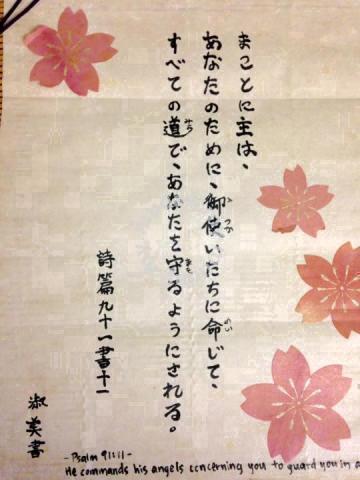 まことに主は、
あなたのために、御使いたちに命じて、
すべての道で、あなたを守るようにされる。
詩篇九十一書十一
淑美書
-Psalm 91:11-
He commands his angels concerning you to guard you in a